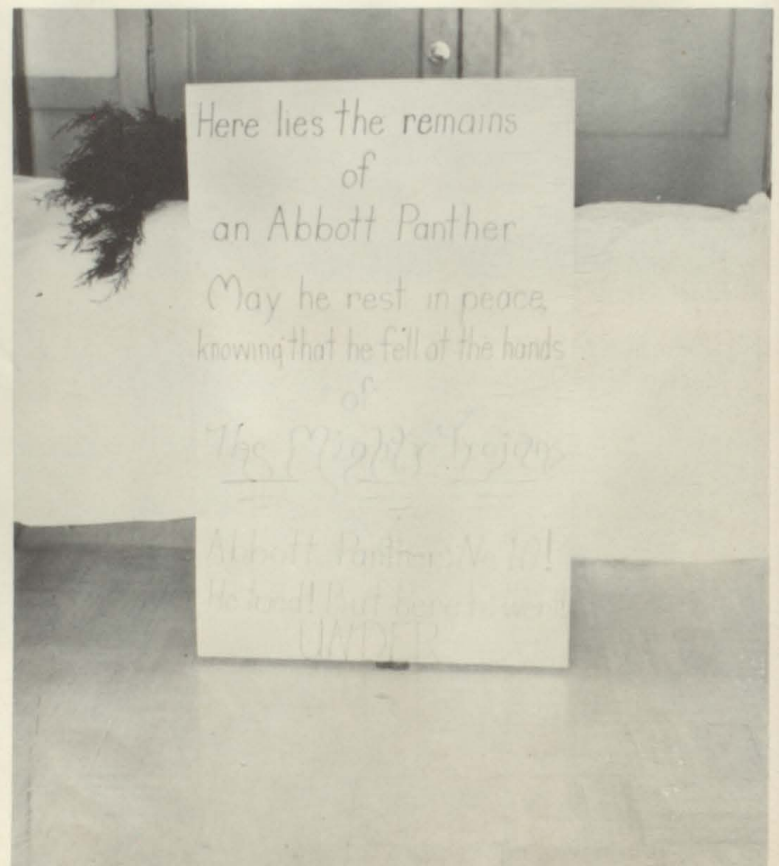 Here lies the remains
of
an Abbott Panther
May he rest in peace,
knowing that he fell at the hands
of
The Mighty Trojans
Abbott Panther No
He tried! But here he went
UNDER